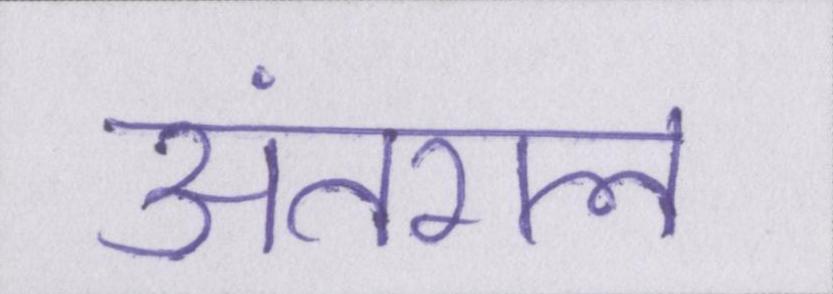 अंतराल